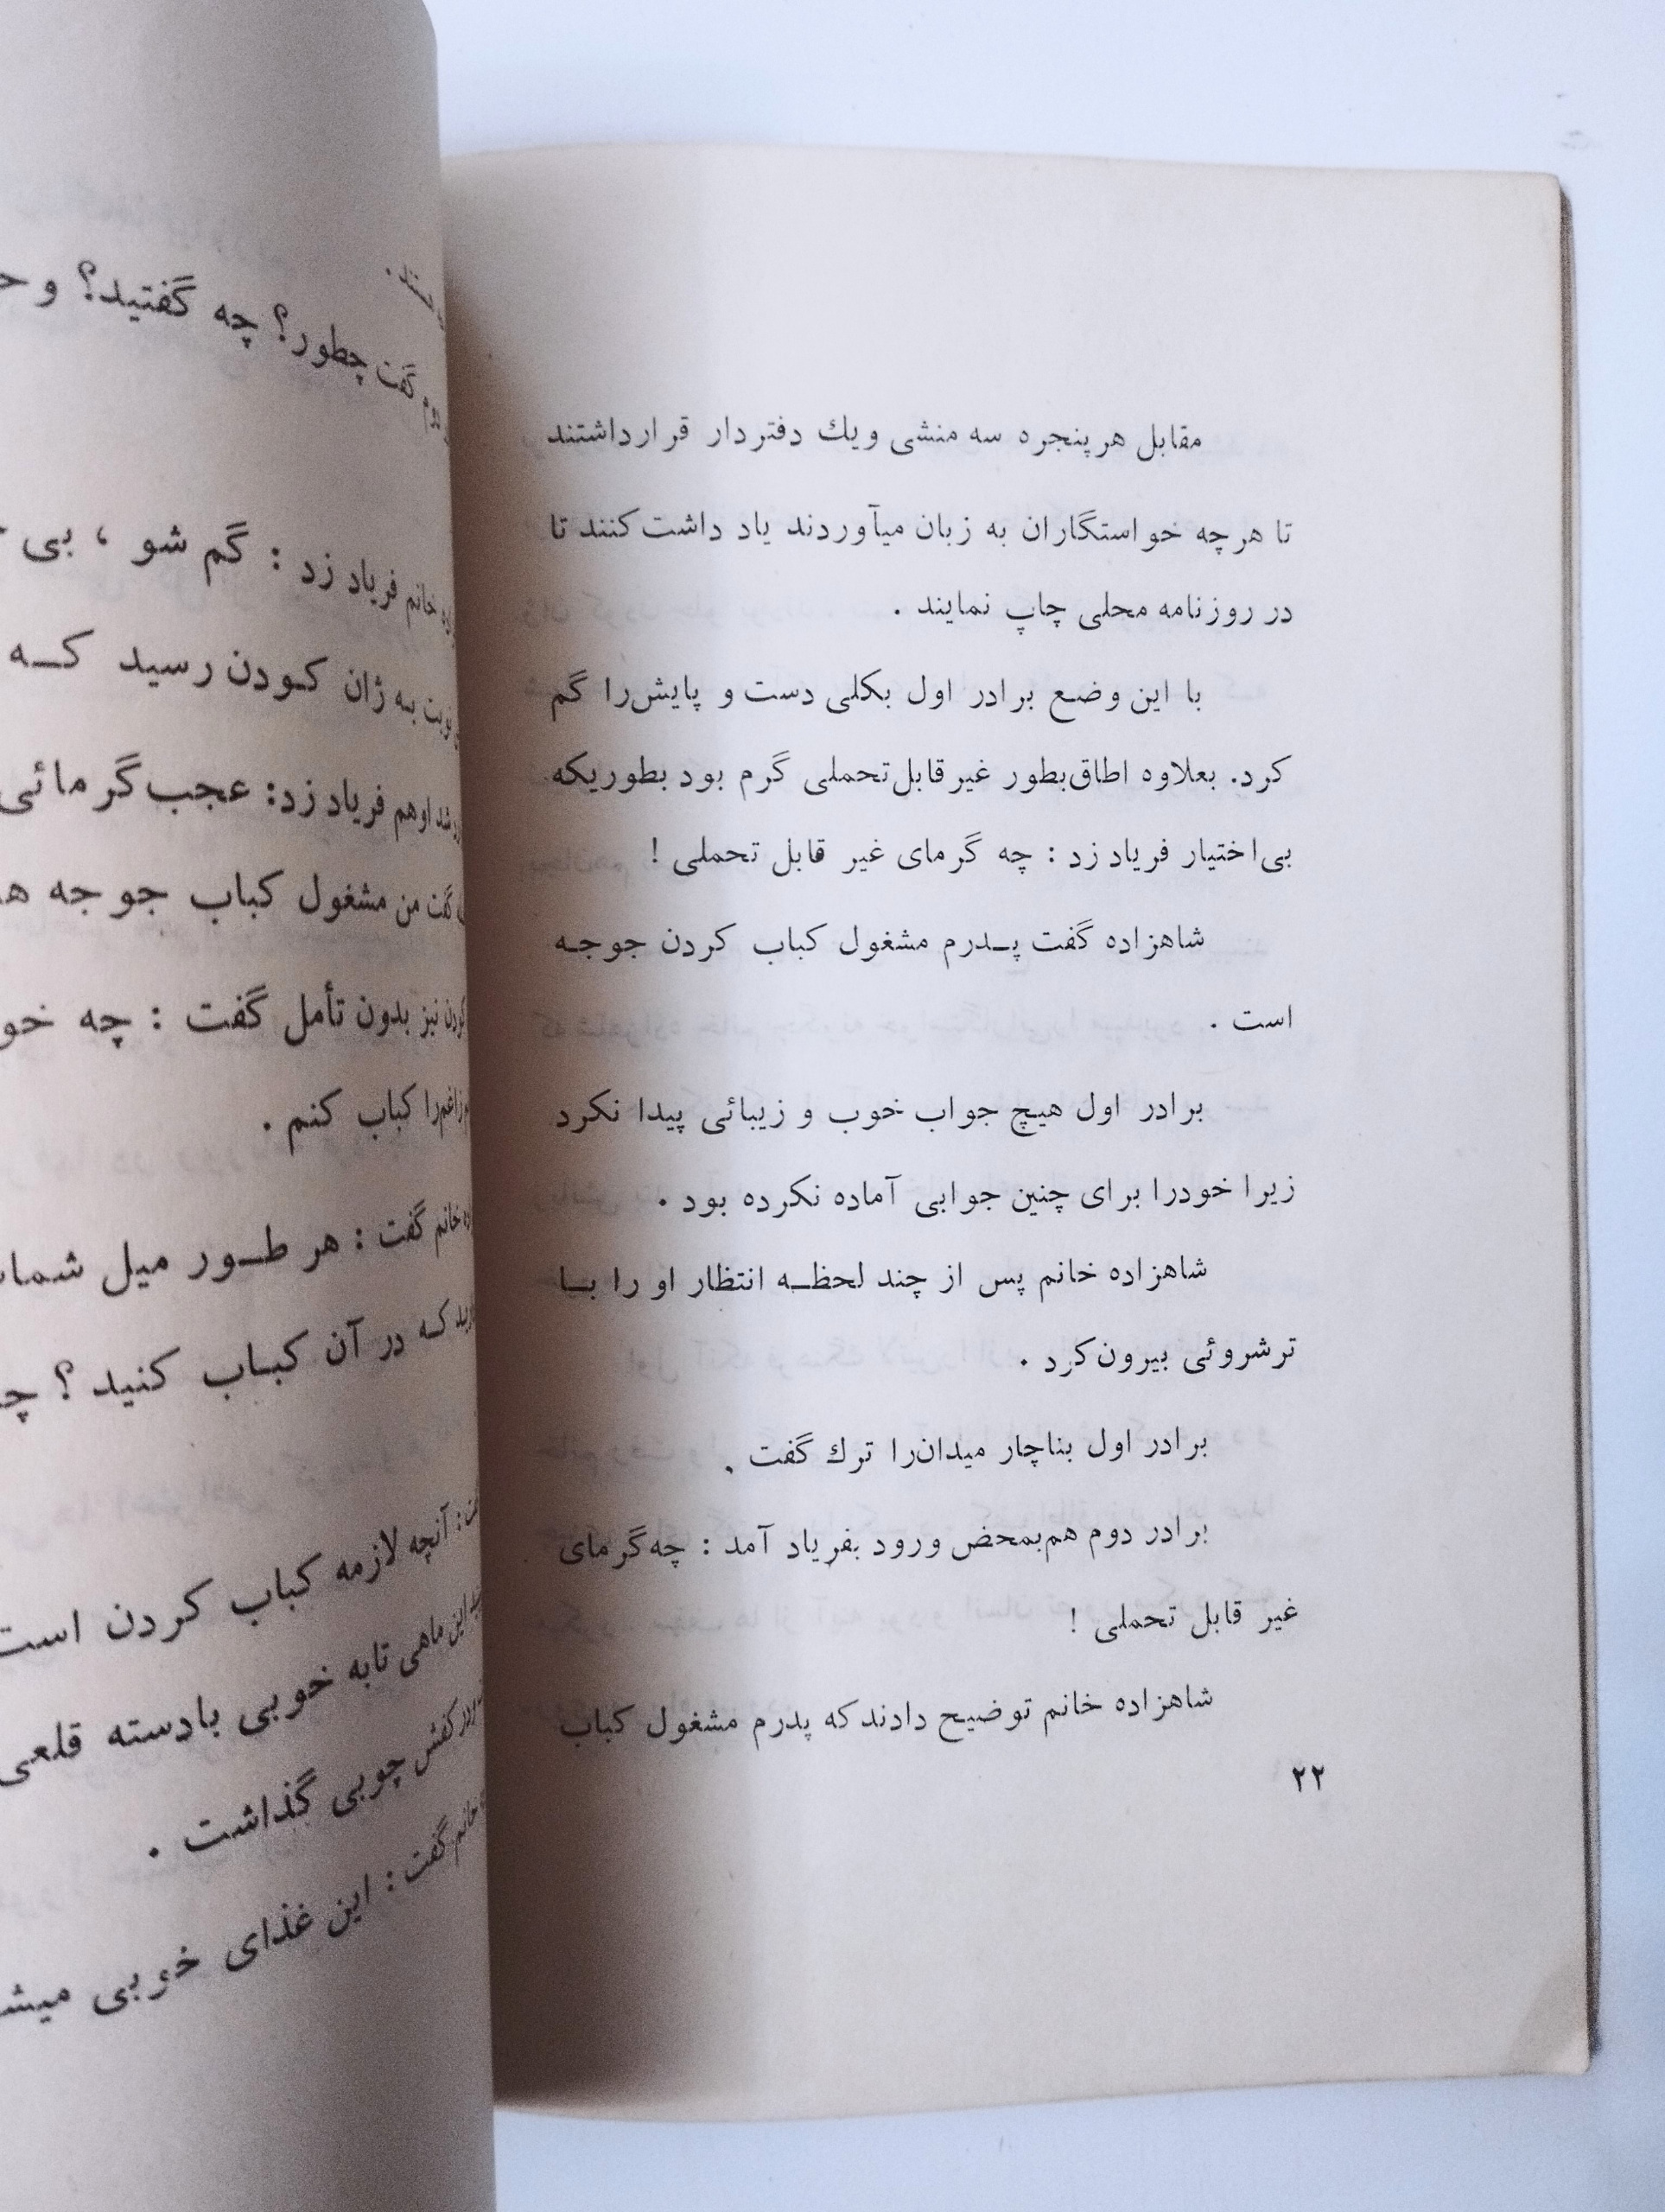 مقابل هر پنجره سه منشی و یك دفتردار قرار داشتند
تا هرچه خواستگاران به زبان میآوردند یاد داشت کنند تا
در روزنامه محلی چاپ نمایند .
با این وضع برادر اول بکلی دست و پایش‌را گم
کرد. بعلاوه اطاق‌بطور غیرقابل‌تحملی گرم بود بطوریکه
بی‌اختیار فریاد زد : چه گرمای غیر قابل تحملی !
شاهزاده گفت پــدرم مشغول کباب کردن جوجـه
است .
برادر اول هیچ جواب خوب و زیبائی پیدا نکرد
زیرا خودرا برای چنین جوابی آماده نکرده بود .
شاهزاده خانم پس از چند لحظــه انتظار او را بــا
ترشروئی بیرون‌کرد .
برادر اول بناچار میدان‌را ترك گفت .
برادر دوم هم‌بمحض ورود بفریاد آمد : چه‌گرمای
غیر قابل تحملی !
شاهزاده خانم توضیح دادند که پدرم مشغول کباب
۲۲
گفت چطور؟ چه گفتید؟ و
خانم فریاد زد : گم شو ، بی
نوبت به ژان کـودن رسید کــه
شد اوهم فریاد زد: عجب‌گرمائی
گفت من مشغول کباب جوجه
کودن نیز بدون تأمل گفت : چه
کباب کنم .
خانم گفت : هر طــور میل
کـه در آن کبـاب کنید ؟
: آنچه لازمه کباب کردن است
این ماهی تابه خوبی بادسته قلعی
کفش چوبی گذاشت .
خانم گفت : این غذای خوبی